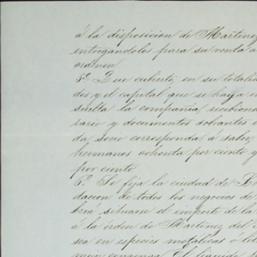 á la disposicion de Martinez
entregandoles para su venta a
ordenen
4º Que cubierto, en su totali
des y el capital que se haya in
suelta la compañia recibiend
sario y documentos sobrantes
da socio corresponda á sabe
hermanos ochenta por ciento y
por ciento
5º Se fija la ciudad de
dacion de todos los negocios de
bra, situara el importe de la
á la órden de Martinez del
sea en especies metálicas ó let